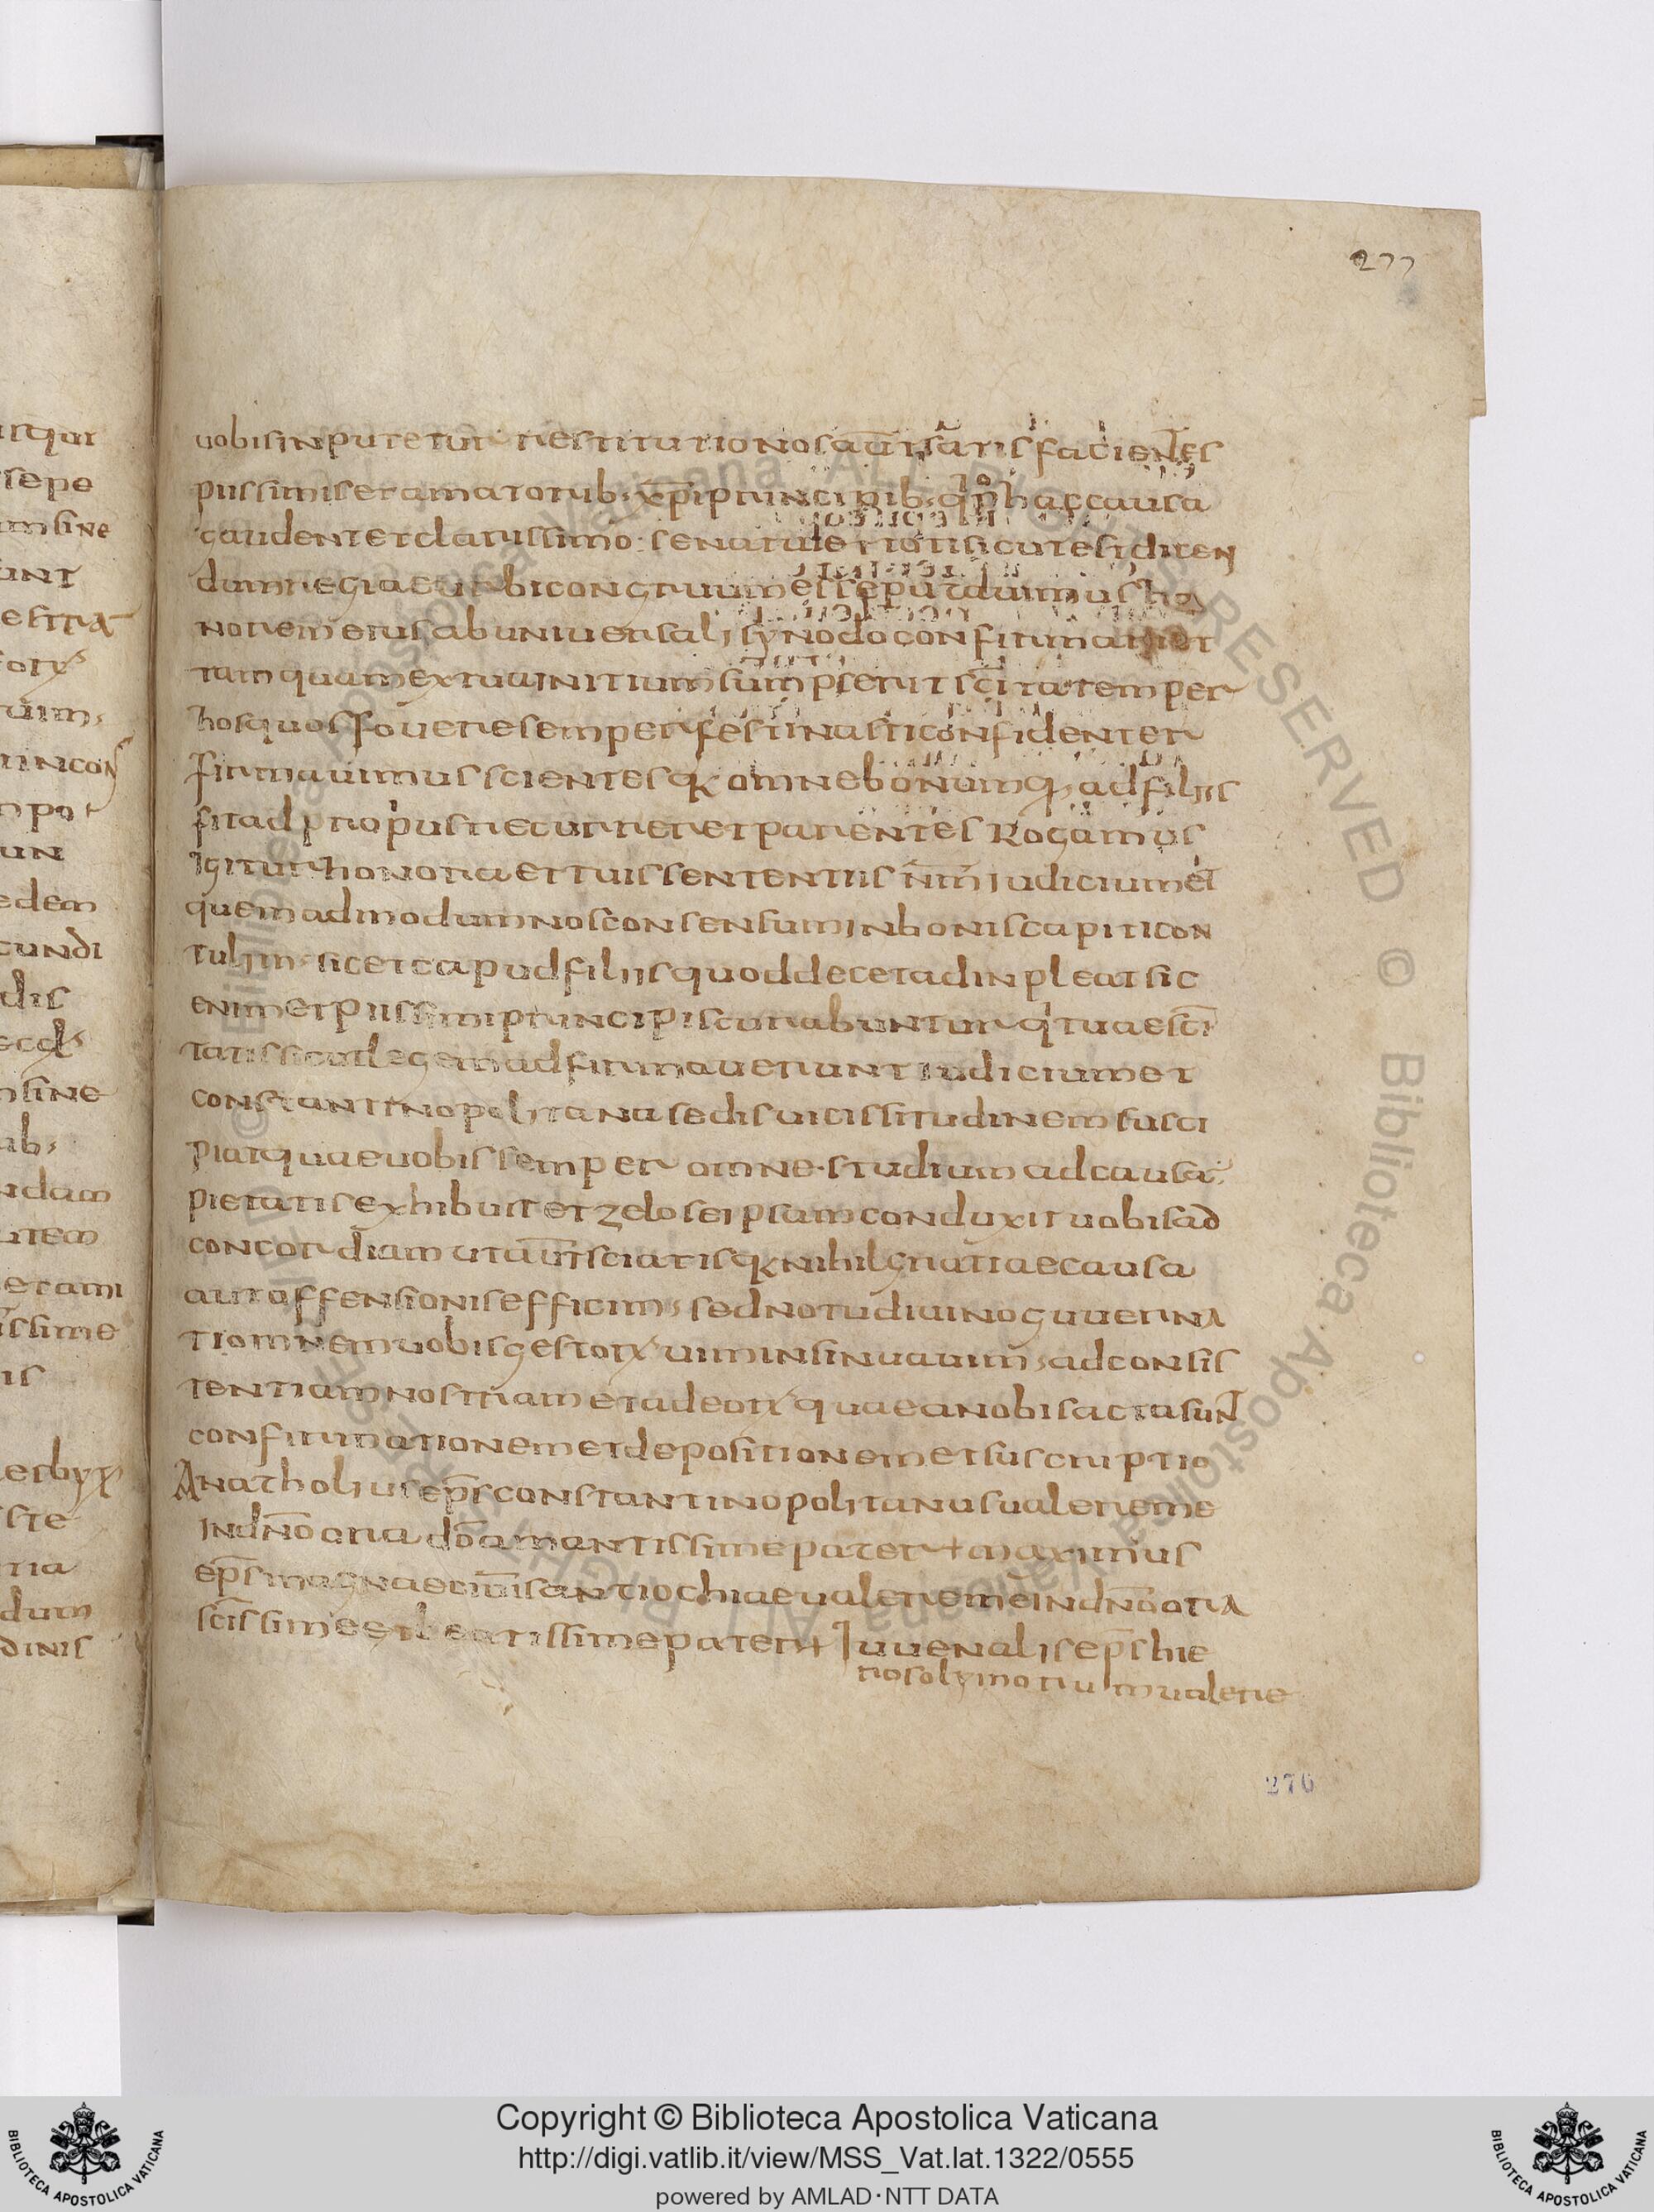 277
uobisinputetur restitutio nos aut̄ satisfacientes
piissimis et amatorib; xp̄i principib; qn̄ hac causa
gaudenter clarissimo senatui
dum regiae urbi congruum esse putauimus ho
norem eius ab uniuersali synodo confirmari et
tamquam ex tua initium sumpserit sc̄itatem per
hos quos fouere semper festinasti confidenter
firmauimus scientes qk omne bonum q; ad filiis
fit ad proprius recurrere et parentes Rogamus
igitur honora et tuis sententiis nr̄m iudicium et
quemadmodum nos consensum in bonis capiti con
tulim; sic et capud filiis quod decet adinpleat sic
enim et piissimi principis curabuntur qi tuae sc̄i
tatis sicut legem adfirmauerunt iudicium et
constantinopolitana sedis uicissitudinem susci
piat quae uobis semper omne studium ad causā
pietatis exhibuit et zelo se ipsam conduxit uobis ad
concordiam ut aut̄ sciatis qk nihil gratiae causa
aut offensionis efficim; sed notu diuino guuerna
ti omnem uobis gestorꝝ uim insinuauim; ad consis
tentiam nostram et ad eorꝝ quae a nobis acta sunt
confirmationem et depositionem et suscriptio
Anatholius ep̄s constantinopolitanus ualere me
in dn̄o ora do amantissime pater + maximus
ep̄s magnae antiochiae ualere me in dn̄o ora
sc̄issime et beatissime pater + Iuuenalis ep̄s hie
rosolymorum ualere
276
Copyright © Biblioteca Apostolica Vaticana
http://digi.vatlib.it/view/MSS_Vat.lat.1322/0555
powered by AMLAD·NTT DATA